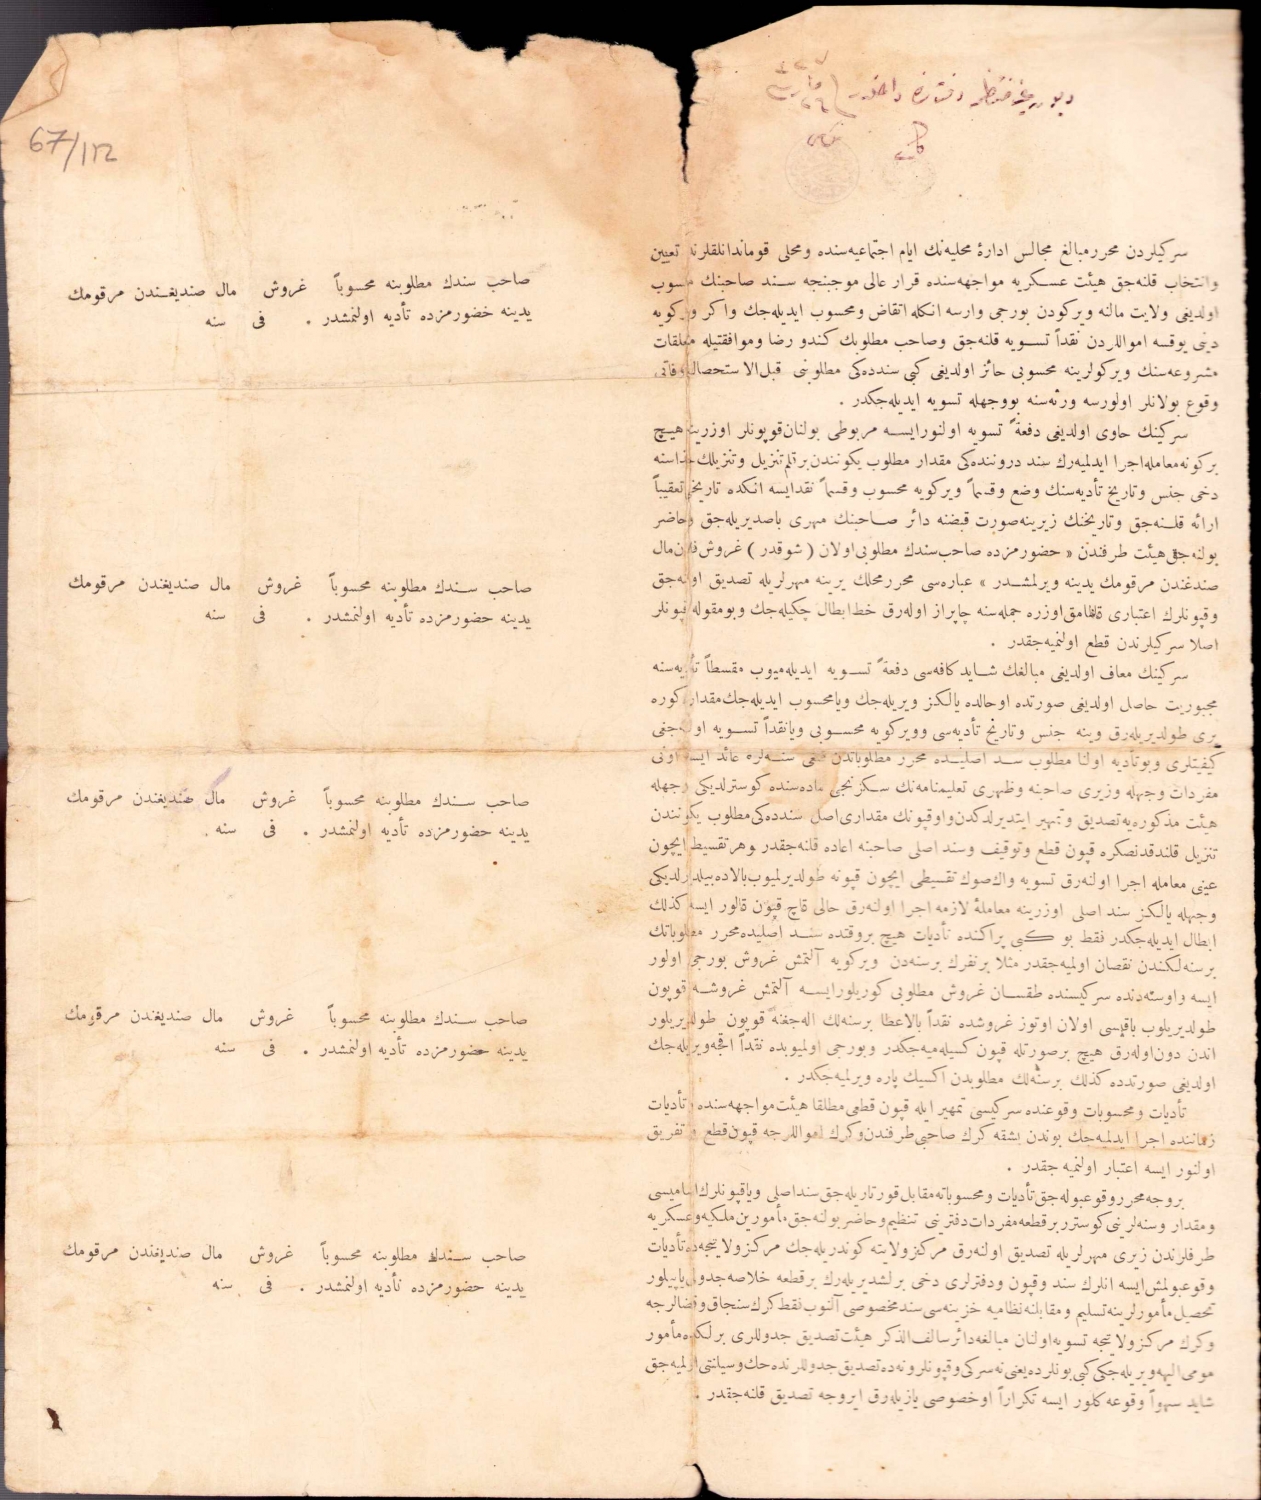 67/112
سركيلردن محرر مبالغ مجالس ادارۀ محليه‌نك ايام اجتماعيه‌سنده ومحلى قوماندانلقلرنه تعيين
وانتخاب قلنه‌جق هيئت عسكريه مواجهه‌سنده قرار عالى موجبنجه سند صاحبنك منسوب
اولديغى ولايت مالنه ويركودن بورجى وارسه انكله اتقاض ومحسوب ايديله‌جك واكر ويركويه
دينى يوقسه امواللردن نقداً تسويه قلنه‌جق وصاحب مطلوبك كندو رضا وموافقتيله متعلقات
مشروعه‌سنك ويركولرينه محسوبى حائز اولديغى كبى سنددەكى مطلوبنى قبل الاستحصال وفاتى
وقوع بولانلر اولورسه ورثه‌سنه بووجهله تسويه ايديله‌جكدر .
سركينك حاوى اولديغى دفعةً تسويه اولنورايسه مربوطى بولنان قوپونلر اوزرينه هيچ
بركونه معامله اجرا ايدلميه‌رك سند دروننده‌كى مقدار مطلوب يكونندن برتلم تنزيل وتنزيلك حذاسنه
دخى جنس وتاريخ تأديه‌سنك وضع وقسماً ويركويه محسوب وقسماً نقدايسه انكده تاريخى تعقيباً
ارائه قلنه‌جق وتاريخنك زيرينه صورت قبضنه دائر صاحبنك مهرى باصديريله‌جق وحاضر
بولنه‌جق هيئت طرفندن « حضورمزده صاحب سندك مطلوبى اولان ( شو قدر ) غروش فلان مال
صندغندن مرقومك يدينه ويرلمشدر » عباره‌سى محرر محلك يرينه مهرلريله تصديق اولنه‌جق
وقپونلرك اعتبارى قالمامق اوزره جمله‌سنه چاپراز اوله‌رق خط ابطال چكيله‌جك وبومقوله قپونلر
اصلا سركيلرندن قطع اولنميه‌جقدر .
سركينك معاف اولديغى مبالغك شايد كافه‌سى دفعةً تسويه ايديله‌ميوب مقسطاً تأديه‌سنه
مجبوريت حاصل اولديغى صورتده اوحالده يالكز ويريله‌جك ويا محسوب ايديله‌جك مقداره كوره
يرى طولديريله‌رق وينه جنس وتاريخ تأديه‌سى وويركويه محسوبى ويانقداً تسويه اولنه‌جغى
كيفيتلرى وبوتأديه اولنا مطلوب سند اصليده محرر مطلوباتدن قنغى سنه‌لره عائد ايسه اونى
مفردات وجهله وزيرى صاحبنه وظهرى تعليمنامه‌نك سكزنجى ماده‌سنده كوسترلديكى وجهله
هيئت مذكوره‌يه تصديق وتمهير ايتديرلدكدن واوقپونك مقدارى اصل سنددەكى مطلوب يكونندن
تنزيل قلندقدنصكره قپون قطع وتوقيف وسند اصلى صاحبنه اعاده قلنه‌جقدر وهر تقسيط ايچون
عينى معامله اجرا اولنه‌رق تسويه واك صوك تقسيطى ايچون قپونه طولديرلميوب بالاده بيلديرلديكى
وجهله يالكز سند اصلى اوزرينه معاملۀ لازمه اجرا اولنه‌رق حالى قاچ قپون قالور ايسه كذلك
ابطال ايديله‌جكدر فقط بو كبى پراكنده تأديات هيچ بروقتده سند اصليده محرر مطلوباتك
برسنه‌لكندن نقصان اولميه‌جقدر مثلا برنفرك برسنه‌دن ويركويه آلتمش غروش بورجى اولور
ايسه واوسنه‌دنده سركيسنده طقسان غروش مطلوبى كوريلورايسه آلتمش غروشه قوپون
طولديريلوب باقيسى اولان اوتوز غروشده نقداً بالاعطا برسنه‌لك اله‌جغنه قوپون طولديريلور
اندن دون اوله‌رق هيچ برصورتله قپون كسيله‌ميه‌جكدر وبورجى اولميوبده نقداً اقچه ويريله‌جك
اولديغى صورتده كذلك برسنه‌لك مطلوبدن اكسيك پاره ويرلميه‌جكدر .
تأديات ومحسوبات وقوعنده سركيسى تمهير ايله قپون قطعى مطلقا هيئت مواجهه‌سنده وتأديات
زماننده اجرا ايدلميه‌جك بوندن بشقه كرك صاحبى طرفندن وكرك امواللرجه قپون قطع وتفريق
اولنور ايسه اعتبار اولنميه‌جقدر .
بروجه محرر وقوعبوله‌جق تأديات ومحسوباته مقابل قورتاريله‌جق سند اصلى وياقپونلرك اساميسى
ومقدار وسنه‌لرينى كوسترر برقطعه مفردات دفترينى تنظيم وحاضر بولنه‌جق مأمورين ملكيه وعسكريه
طرفلرندن زيرى مهرلريله تصديق اولنه‌رق مركز ولايته كوندريله‌جك مركز ولايتجه‌ده تأديات
وقوعبولمش ايسه انلرك سند وقپون ودفترلرى دخى برلشديريله‌رك برقطعه خلاصه جدولى ياپيلور
تحصيل مأمورلرينه تسليم ومقابلنه نظاميه خزينه‌سى سند مخصوصى آلنوب فقط كرك سنجاق وقضالرجه
وكرك مركز ولايتجه تسويه اولنان مبالغه دائر سالف الذكر هيئت تصديق جدوللرى برلكده مأمور
مومى اليهه ويريله‌جكى كبى بونلرده يعنى نه سركى وقپونلر ونه‌ده تصديق جدوللرنده حك وسيلنتى اولميه‌جق
شايد سهواً وقوعه كلور ايسه تكراراً اوخصوصى يازيله‌رق ايروجه تصديق قلنه‌جقدر .
صاحب سندك مطلوبنه محسوباً غروش مال صنديغندن مرقومك
يدينه حضورمزده تأديه اولنمشدر . فى سنه
صاحب سندك مطلوبنه محسوباً غروش مال صنديغندن مرقومك
يدينه حضورمزده تأديه اولنمشدر . فى سنه
صاحب سندك مطلوبنه محسوباً غروش مال صنديغندن مرقومك
يدينه حضورمزده تأديه اولنمشدر . فى سنه .
صاحب سندك مطلوبنه محسوباً غروش مال صنديغندن مرقومك
يدينه حضورمزده تأديه اولنمشدر . فى سنه
صاحب سندك مطلوبنه محسوباً غروش مال صنديغندن مرقومك
يدينه حضورمزده تأديه اولنمشدر . فى سنه